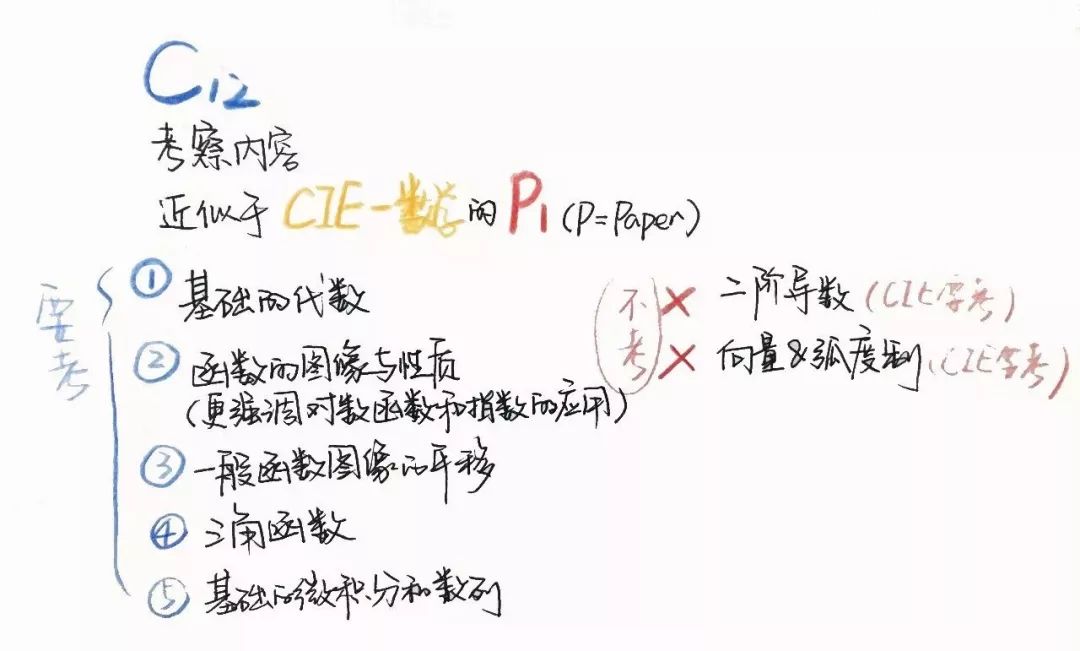 C12
考察内容
近似于 CIE-数学的 P1 (P=Paper)
要考
① 基础的代数
② 函数的图像与性质
(更强调对数函数和指数的应用)
③ 一般函数图像的平移
④ 三角函数
⑤ 基础的微积分和数列
不考
× 二阶导数 (CIE要考)
× 向量&弧度制 (CIE要考)